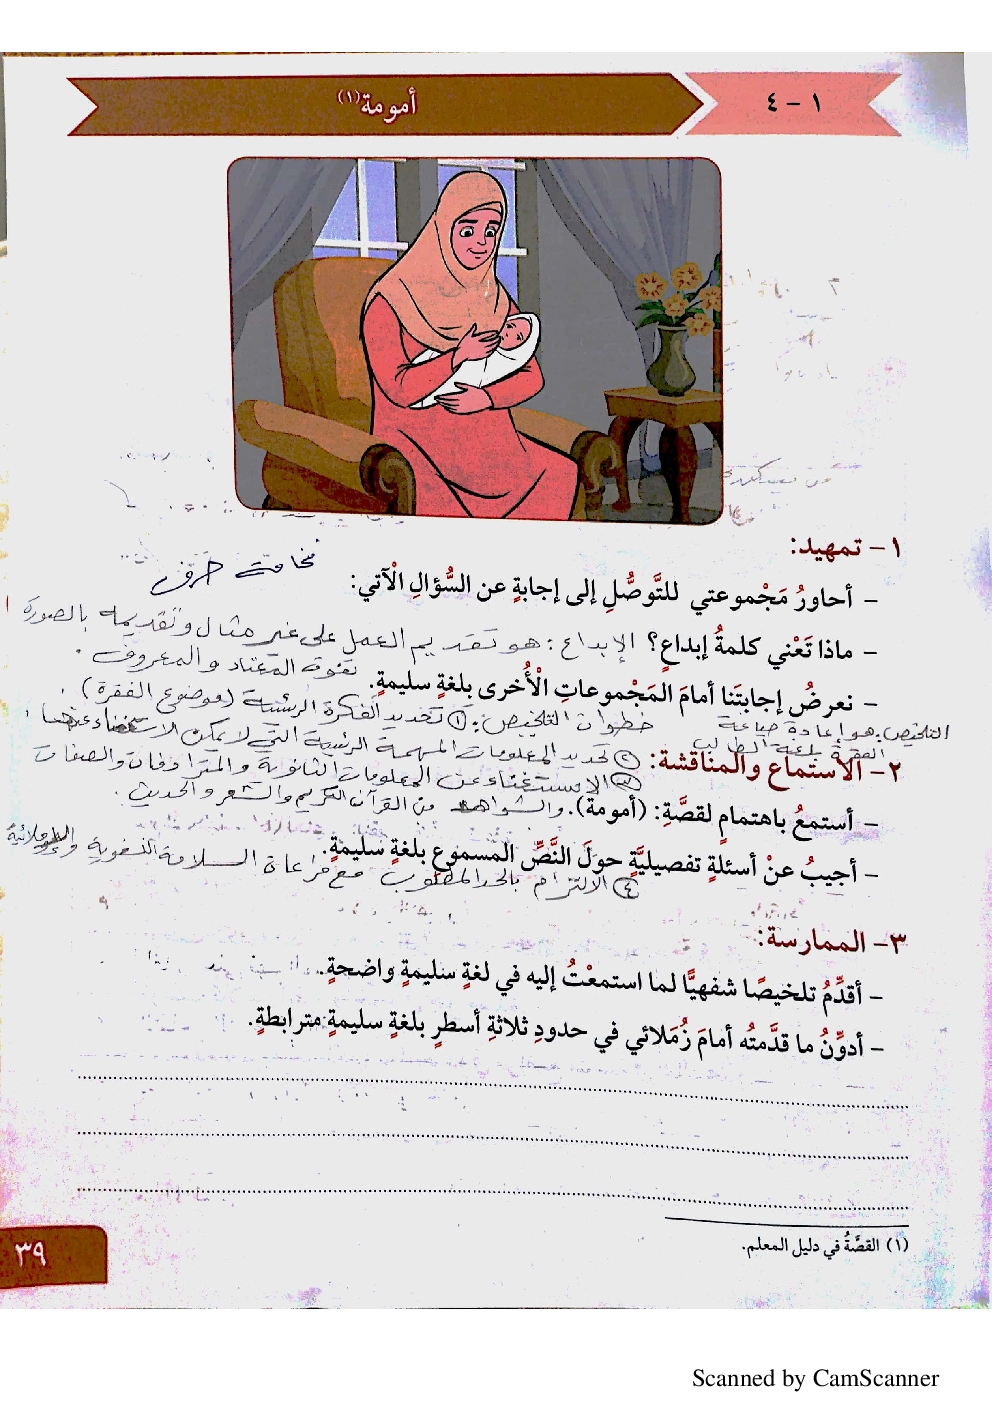 ١ - ٤
أمومة(١)
١- تمهيد:
فخامة حرف
- أحاورُ مَجْموعتي للتَّوصُّلِ إلى إجابةٍ عن السُّؤالِ الْآتي:
- ماذا تَعْني كلمةُ إبداعٍ؟ الإبداع: هو تقديم العمل على غير مثال وتقديمه بالصورة
تفوق المعتاد والمعروف.
- نعرضُ إجابتَنا أمامَ المَجْموعاتِ الْأُخرى بلغةٍ سليمةٍ.
التلخيص: هو إعادة صياغة
الفقرة بلغة الطالب
خطوات التلخيص: ① تحديد الفكرة الرئيسية (موضوع الفقرة).
② تحديد المعلومات المهمة الرئيسة التي لا يمكن الاستغناء عنها.
٢- الاستماع والمناقشة:
③ الاستغناء عن المعلومات الثانوية والمترادفات والصفات
والشواهد من القرآن الكريم والشعر والحديث.
- أستمعُ باهتمامٍ لقصَّةِ: (أمومة).
- أجيبُ عنْ أسئلةٍ تفصيليَّةٍ حولَ النَّصِّ المسموعِ بلغةٍ سليمةٍ.
④ الالتزام بالحد المطلوب مع مراعاة السلامة اللغوية والإملائية
٣- الممارسة:
- أقدِّمُ تلخيصًا شفهيًّا لما استمعْتُ إليه في لغةٍ سليمةٍ واضحةٍ.
- أدوِّنُ ما قدَّمته أمامَ زُمَلائي في حدودِ ثلاثةِ أسطرٍ بلغةٍ سليمةٍ مترابطةٍ.
(١) القصَّةُ في دليل المعلم.
٣٩
Scanned by CamScanner